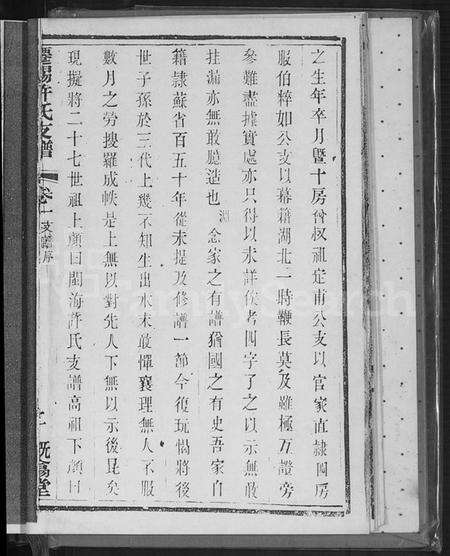 之生年卒月暨十房叔祖定甫公支以官家直隸四房
服伯粹如公支以幕籍湖北一時鞭長莫及雖極互證旁
參難盡據實處亦只得以未詳俟考四字了之以示無敢
挂漏亦無敢臆造也淵念家之有譜猶國之有史吾家自
籍隸蘇省百五十年從未提及修譜一節今復玩愒將後
世子孫於三代上幾不知生出水未敢憚襄理無人不服
數月之勞搜羅成帙是上無以對先人下無以示後昆矣
現擬將二十七世祖上顏曰閩海許氏支譜高祖下顏曰
遷錫許氏支譜
卷一
支譜序
既錫堂
FamilySearch